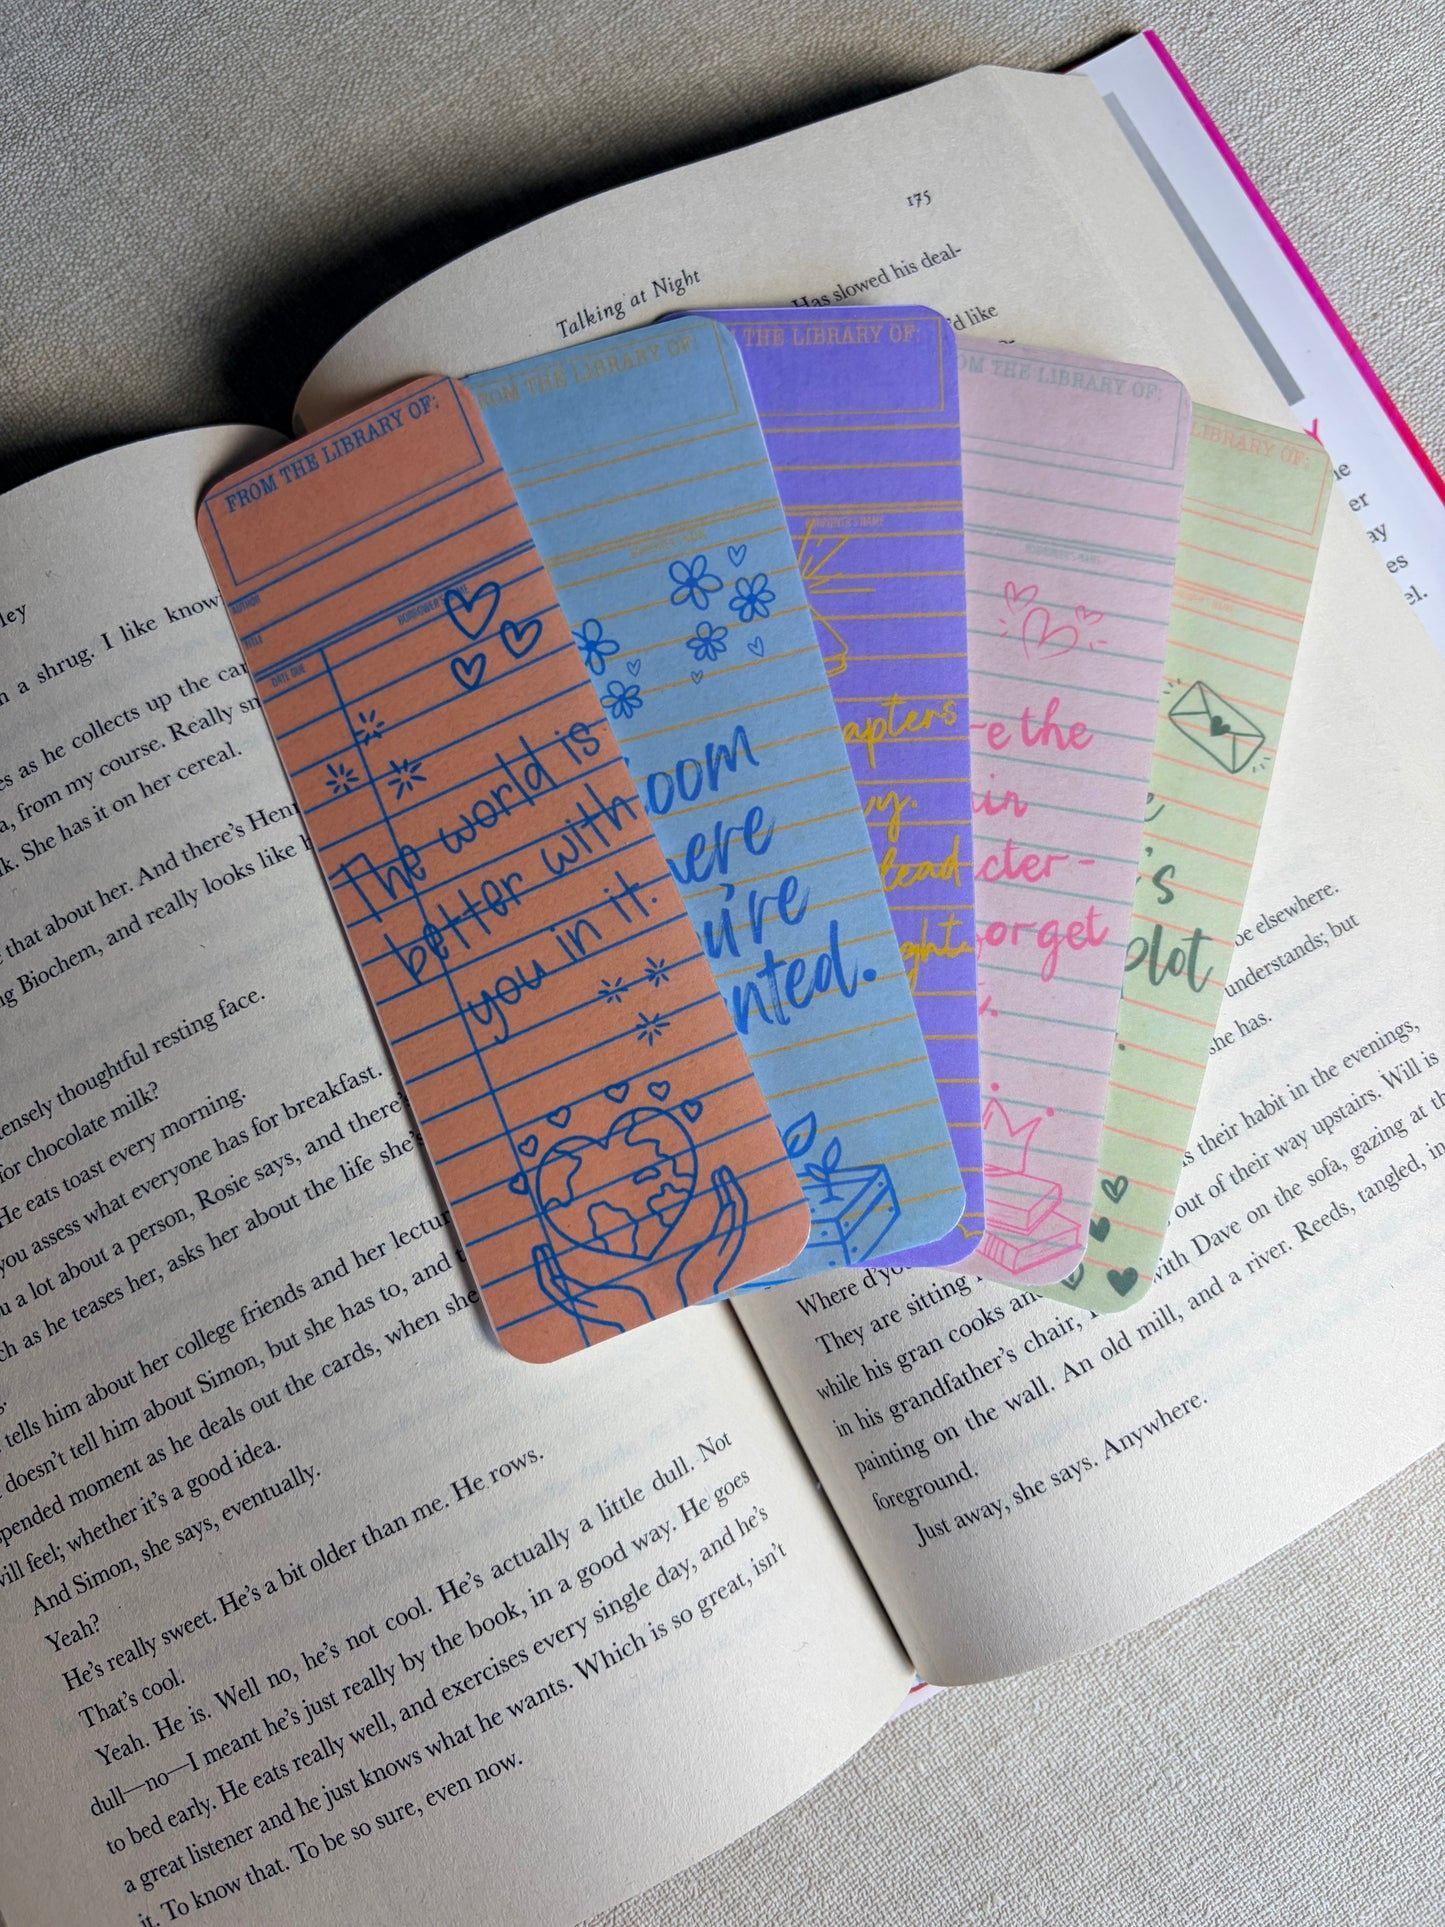 ley
n a shrug. I like know
es as he collects up the car
a, from my course. Really sn
k. She has it on her cereal.
that about her. And there's Henr
g Biochem, and really looks like h
ensely thoughtful resting face.
for chocolate milk?
He eats toast every morning.
you assess what everyone has for breakfast.
u a lot about a person, Rosie says, and there's
ch as he teases her, asks her about the life she's
tells him about her college friends and her lectur
doesn't tell him about Simon, but she has to, and t
spended moment as he deals out the cards, when she
will feel; whether it's a good idea.
And Simon, she says, eventually.
Yeah?
He's really sweet. He's a bit older than me. He rows.
That's cool.
Yeah. He is. Well no, he's not cool. He's actually a little dull. Not
dull—no—I meant he's just really by the book, in a good way. He goes
to bed early. He eats really well, and exercises every single day, and he's
a great listener and he just knows what he wants. Which is so great, isn't
it. To know that. To be so sure, even now.
Talking at Night
175
Has slowed his deal-
'd like
or
be elsewhere.
understands; but
she has.
is their habit in the evenings,
out of their way upstairs. Will is
Where d'yo
They are sitting
while his gran cooks an
with Dave on the sofa, gazing at th
in his grandfather's chair,
painting on the wall. An old mill, and a river. Reeds, tangled, in
foreground.
Just away, she says. Anywhere.
he
er
ay
es
el.
FROM THE LIBRARY OF:
AUTHOR
TITLE
DATE DUE
BORROWER'S NAME
The world is
better with
you in it.
ROM THE LIBRARY OF:
BORROWER'S NAME
oom
here
u're
nted.
THE LIBRARY OF:
BORROWER'S NAME
apters
y.
lead
ght.
OM THE LIBRARY OF:
BORROWER'S NAME
re the
in
cter-
orget
LIBRARY OF:
e
's
plot